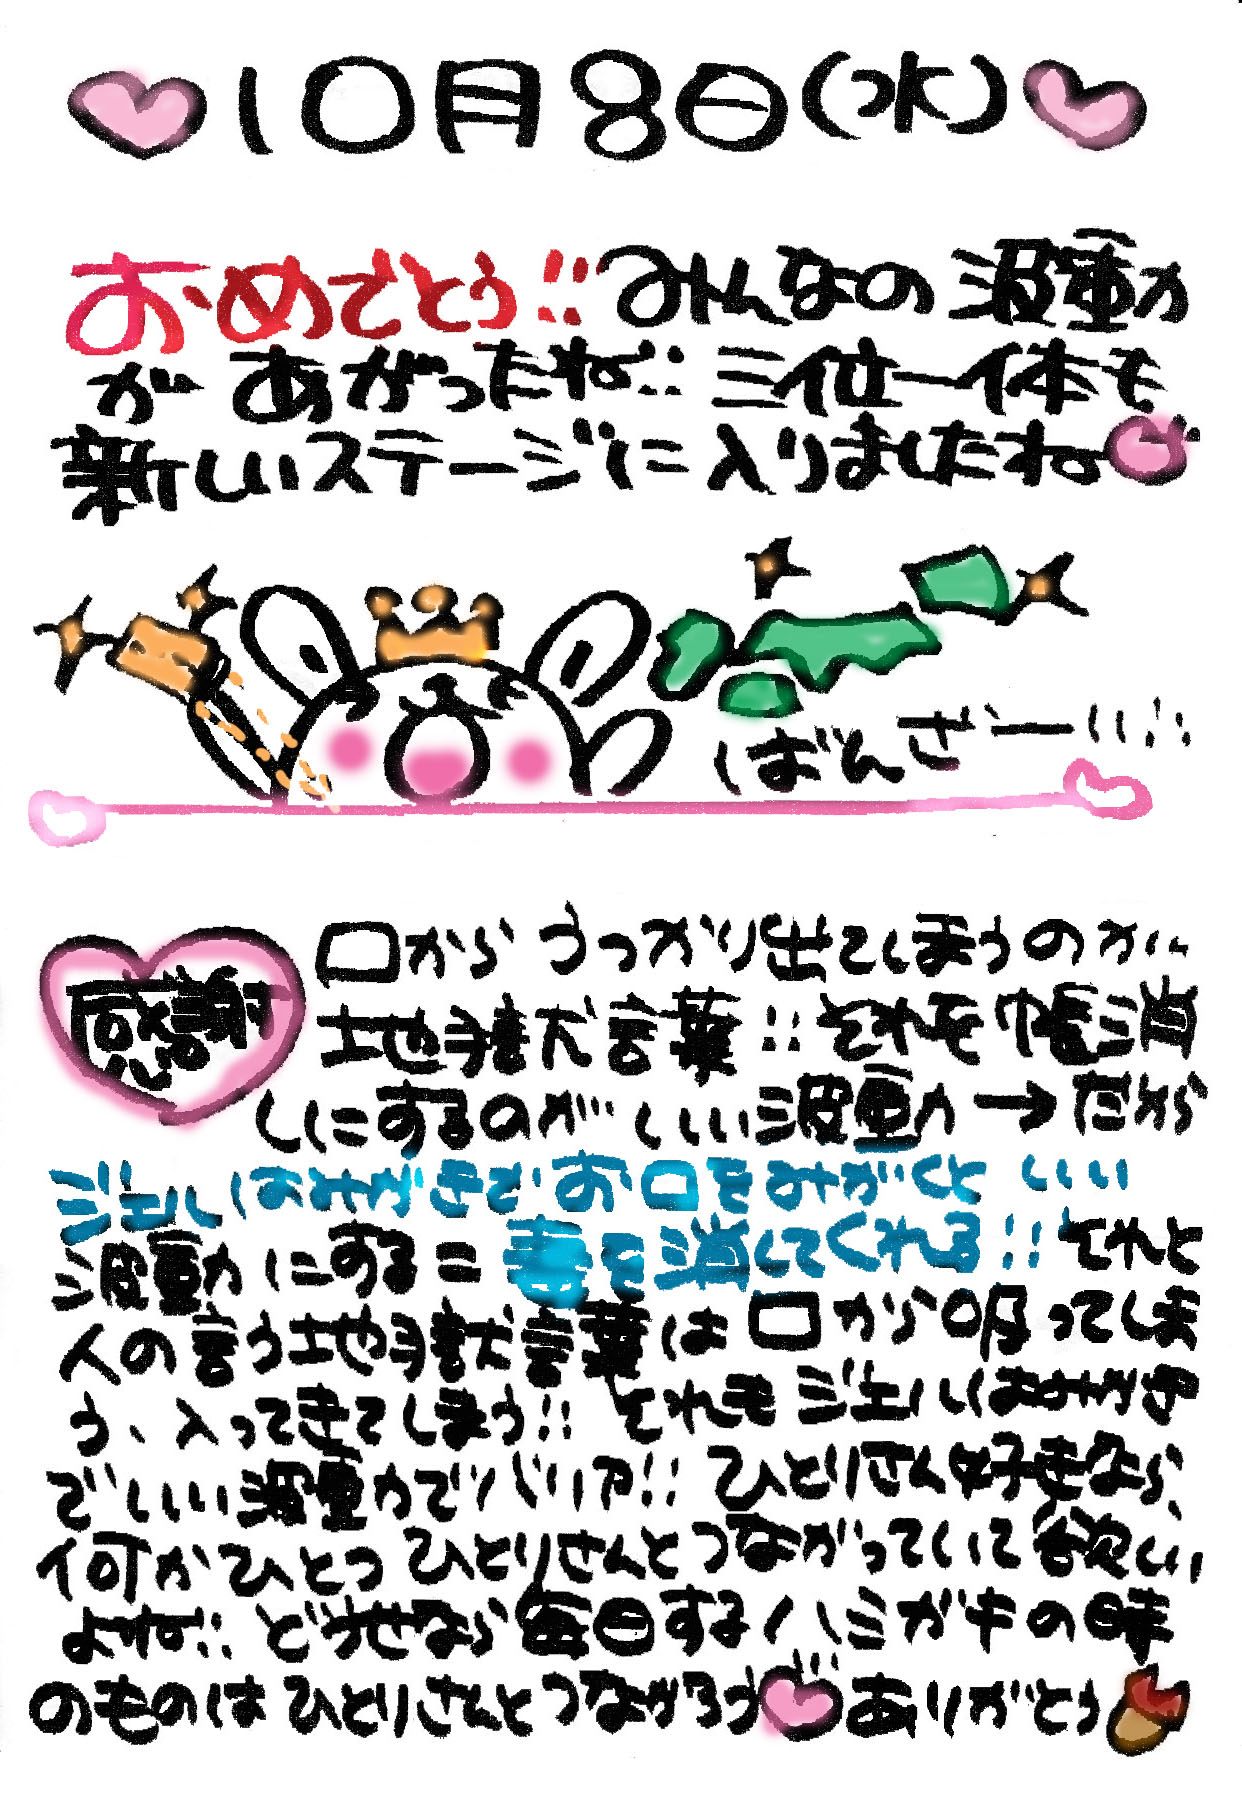 10月8日(水)
おめでとう!!みんなの波動力
があがったね!!三位一体も
新しいステージに入りましたね
ばんざーい!!
感謝
口からうっかり出てしまうのが…
地獄言葉!!それを帳消
しにするのがいい波動力→だから
ジェルはみがきでお口をみがくといい
波動力にする=毒を消してくれる!!それと
人の言う地獄言葉は口から吸ってしま
う、入ってきてしまう!!それもジェルはみがき
でいい波動力でバリア!!ひとりさん好きなら、
何かひとつひとりさんとつながっていて欲しい
よね!!どうせなら毎日するハミガキの時
のものはひとりさんとつながろう ありがとう